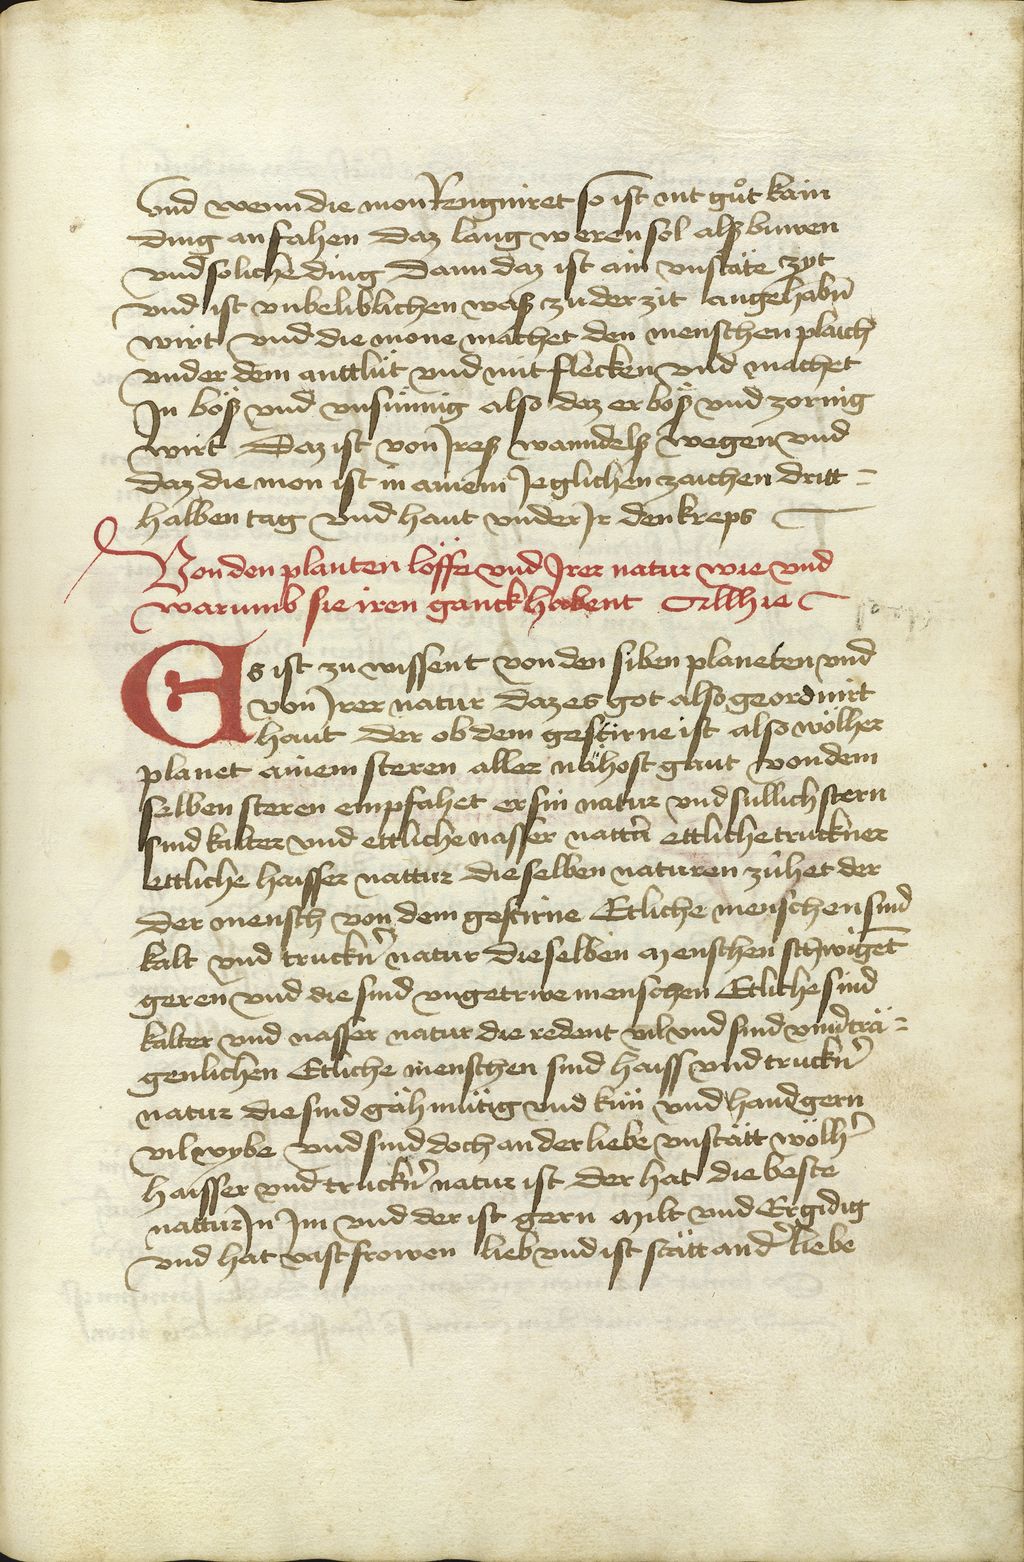 Vnd wenn die mon Rengniret so ist nit gůt kain
ding an fahen daz lang weren sol alß buwen
vnd soliche ding Dann daz ist ain vnstäte zyt
vnd ist vnbeliblichen waß zu der zit angehabñ
wirt vnd die mone machet den menschen plaich
vnder dem anttlüt vnd mit flecken vnd machet
In böß vnd vnsinnig also daz er böß vnd zornig
wirt Daz ist von Ireß wanndelß wegen vnd
daz die mon ist in ainem Jeglichen zaichen dritt =
halben tag vnd haut vnder Ir den kreps
Von den planten löffe vnd Irer natur wie vnd
warumb sie iren ganck habent Allhie
Es ist zu wissent von den siben planeten vnd
von Irer natur daz es got also geordnirt
haut der ob dem gestirne ist also wölher
planet ainem steren aller nähost gaut von dem
selben steren empfahet er sin natur vnd sullich stern
sind kalter vnd ettliche nasser natt᷑ ettliche truckner
ettliche haisser nattur die selben naturen zühet der
der mensch von dem gestirne Etliche menschen sind
kalt vnd truckn᷑ natur die selben menschen schwigēt
geren vnd die sind vngetrwe menschen Etliche sind
kalter vnd nasser natur die redent vil vnd sind vnuᷣträ =
genlichen Etliche menschen sind haiss vnd truckn᷑
natur die sind gächmütig vnd kün vnd hand gern
vil wybe vnd sind doch an der liebe vnstätt wölh᷑
haisser vnd truckn᷑ natur ist der hat die beste
nattur In Im vnd der ist gern Milt vnd Ergidig
vnd hat vast frowen lieb vnd ist stätt an d᷑ liebe